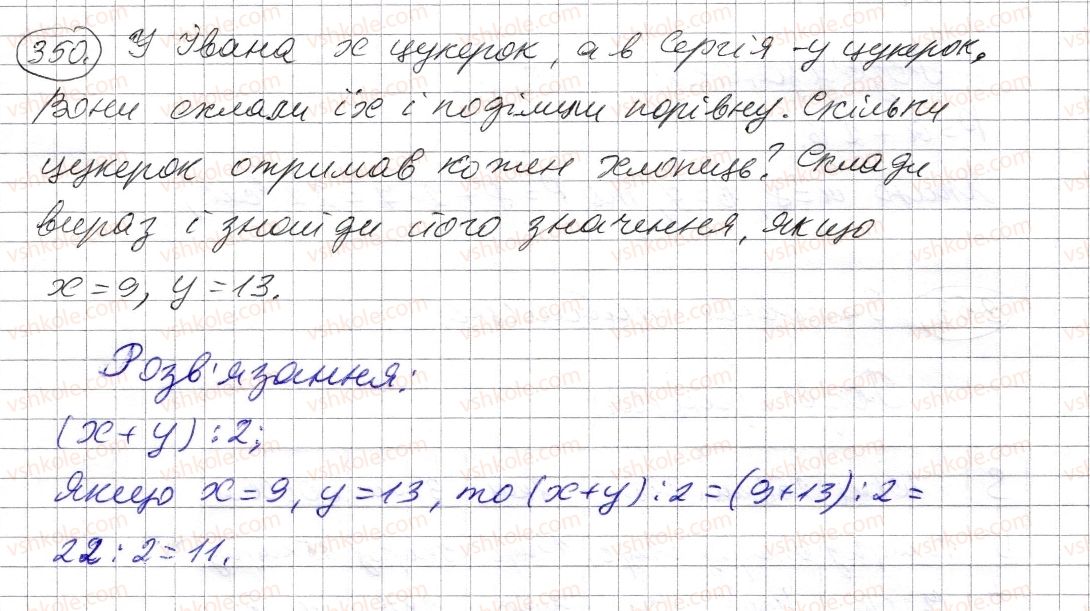 350. У Івана x цукерок, а в Сергія - y цукерок.
Вони склали їх і поділили порівну. Скільки
цукерок отримав кожен хлопець? Склади
вираз і знайди його значення, якщо
x = 9, y = 13.
Розв'язання:
(x + y) : 2;
Якщо x = 9, y = 13, то (x + y) : 2 = (9 + 13) : 2 =
22 : 2 = 11.